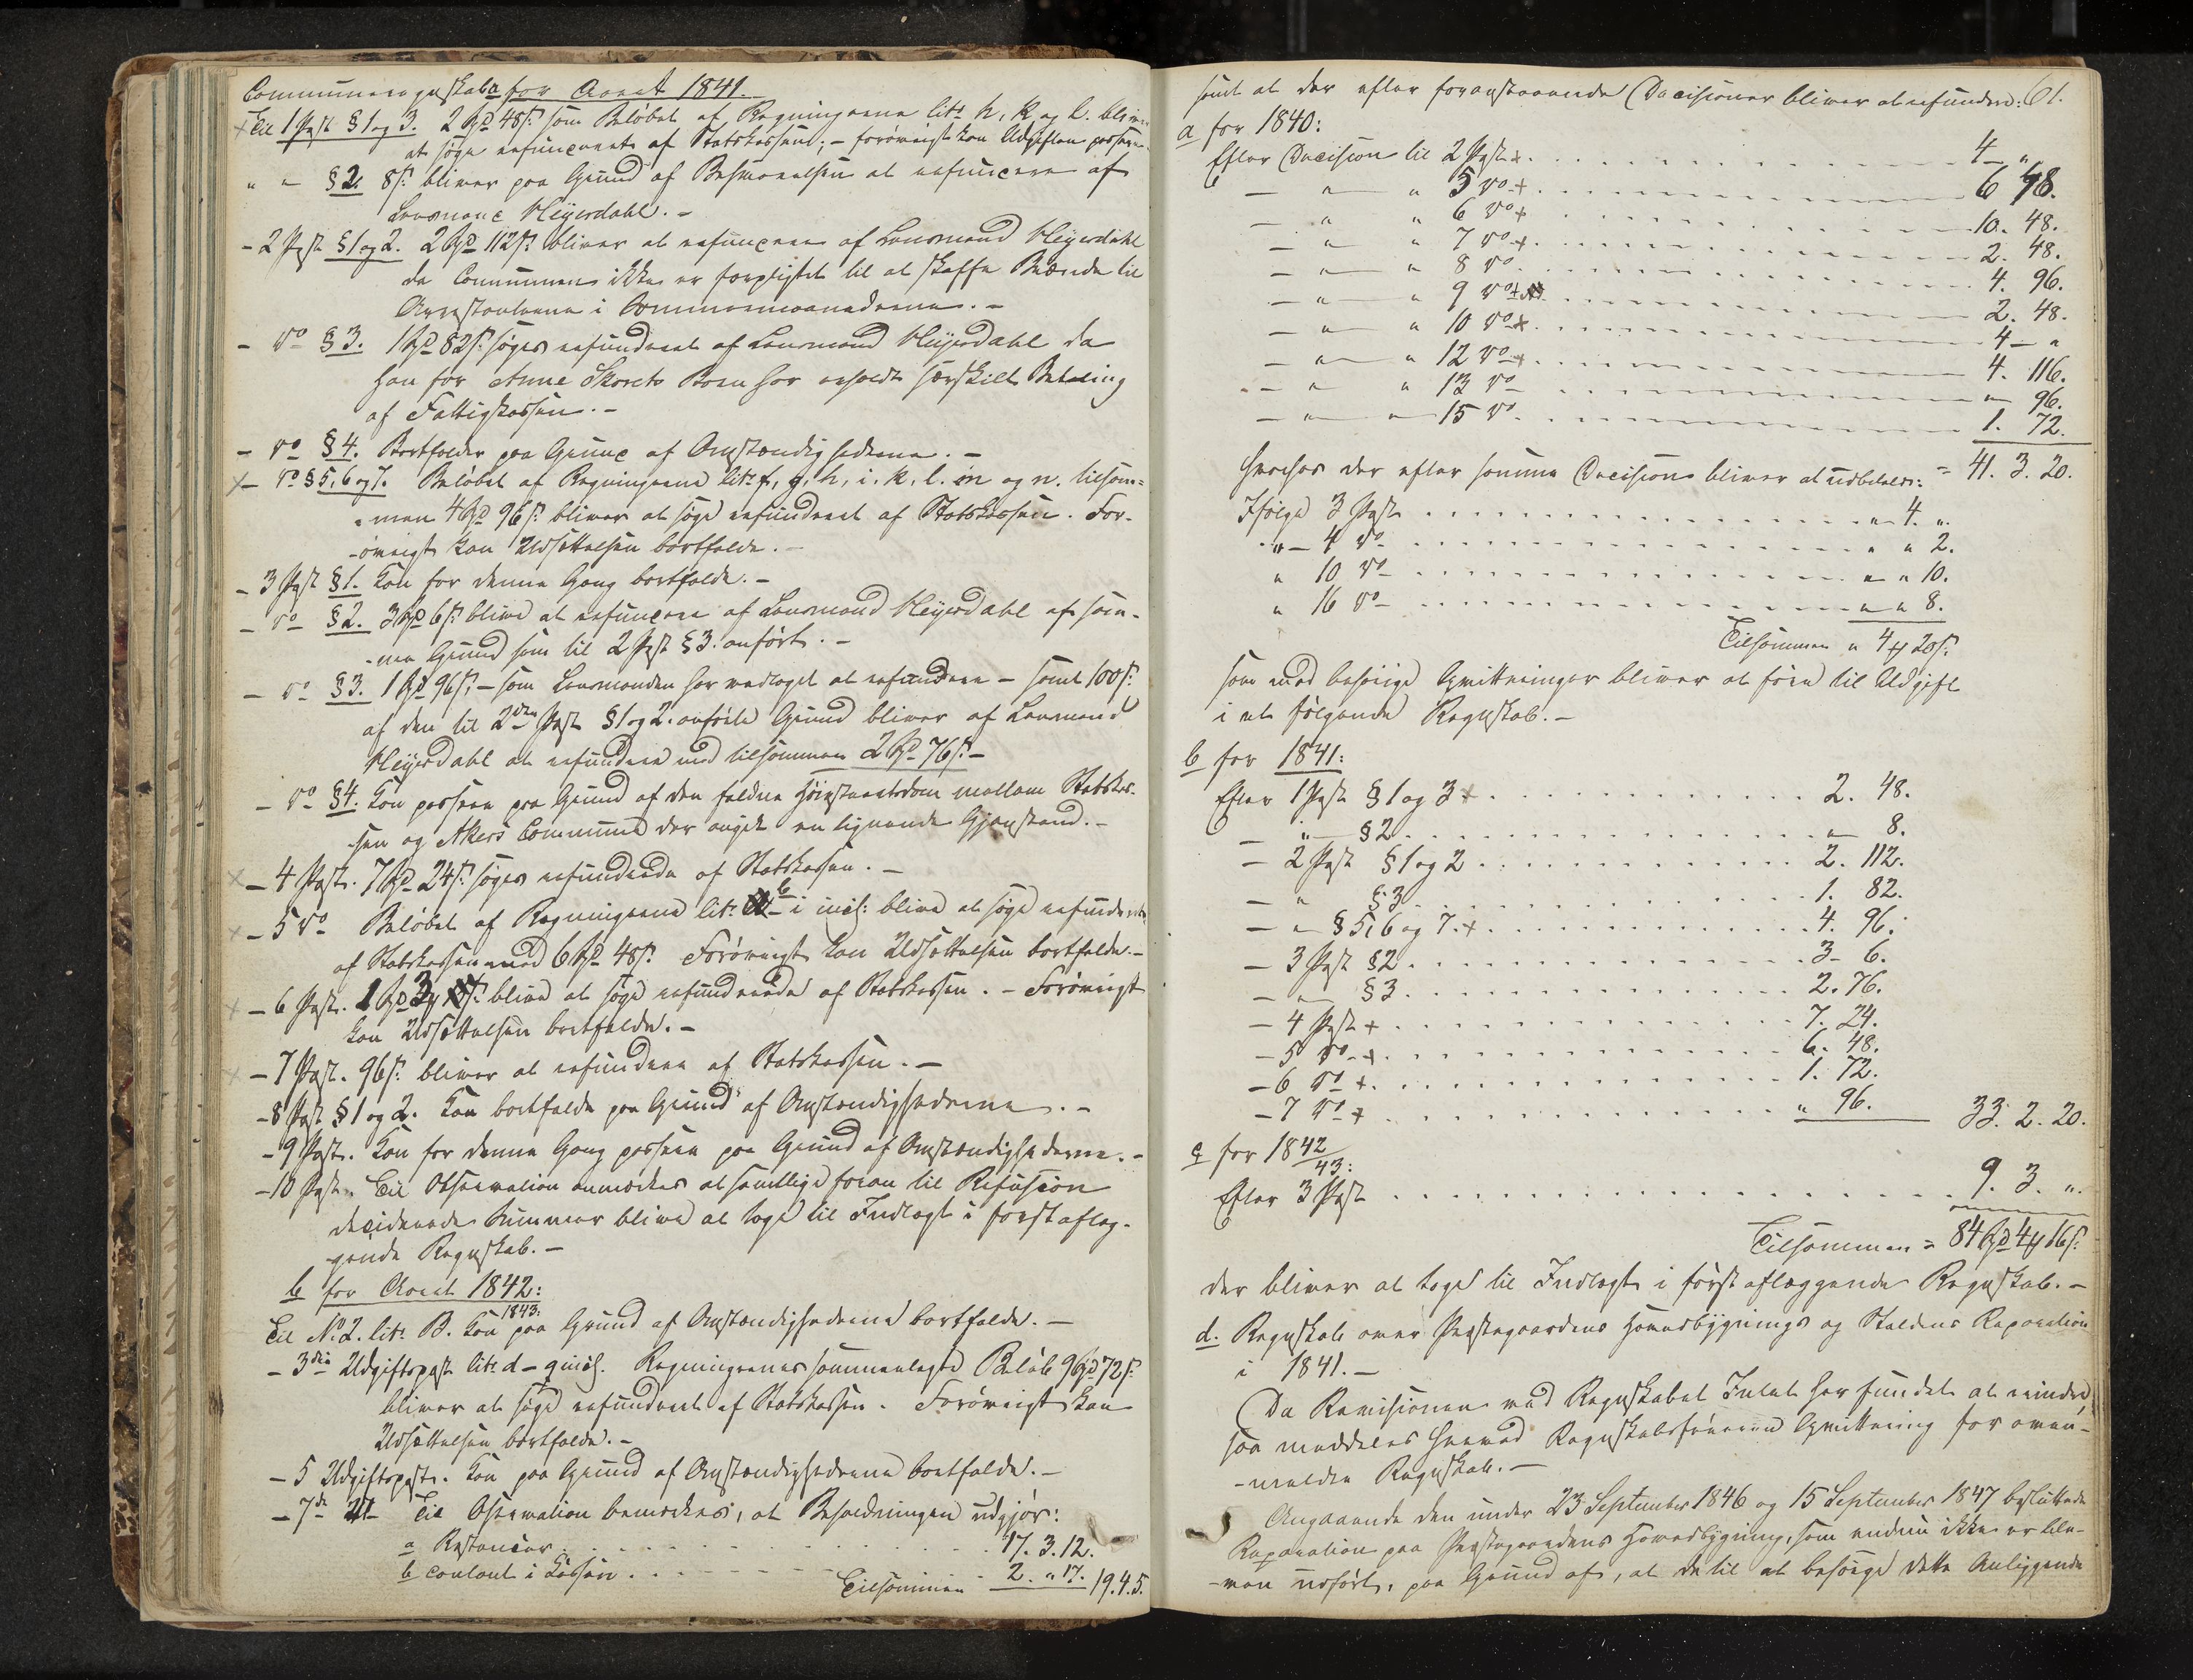 Communeregnskab a for Aaret 1841.
× Til 1 Post § 1 og 3. 2 Spd 48 s. som Beløbet af Regningerne litr. h, k og l. bliver
at søge refunderet af Statskassen; – forøvrigt kan Udgiften passere.
" – § 2. 8 s. bliver paa Grund af Besvarelsen at refundere af
Lensmand Heyerdahl. –
– 2 Post § 1 og 2. 2 Spd 112 s. bliver at refundere af Lensmand Heyerdahl
da Communen ikke er forpligtet til at skaffe Brænde til
Arrestanterne i Sommermaanederne. –
– do § 3. 1 Spd 82 s. søges refunderet af Lensmand Heyerdahl da
han for Anne Skorets Børn har erholdt særskilt Betaling
af Fattigkassen. –
– do § 4. Bortfalder paa Grund af Omstændighederne. –
× – do § 5, 6 og 7. Beløbet af Regningerne litr. f, g, h, i. k, l. m og n. tilsam=
=men 4 Spd 96 s. bliver at søge refunderet af Statskassen. For-
-øvrigt kan Udsættelsen bortfalde. –
– 3 Post § 1. Kan for denne Gang bortfalde. –
– do § 2. 3 Spd 6 s. blive at refundere af Lensmand Heyerdahl af sam-
-me Grund som til 2 Post § 3. anført. –
– do § 3. 1 Spd 96 s. – som Lensmanden har vedtaget at refundere – samt 100 s.
af den til 2den Post § 1 og 2. anførte Grund bliver af Lensmand
Heyerdahl at refundere med tilsammen 2 Spd 76 s. –
– do § 4. Kan passere paa Grund af den faldne Høiesteretsdom mellem Statskas-
sen og Akers Commune der angik en lignende Gjenstand. –
× – 4 Post. 7 Spd 24 s. søges refunderede af Statskassen. –
× – 5 do Beløbet af Regningerne litr. b – i incl: blive at søge refunderede
af Statskassen med 6 Spd 48 s. Forøvrigt kan Udsættelsen bortfalde. –
× – 6 Post. 1 Spd 3 blive at søge refunderede af Statskassen. – Forøvrigt
kan Udsættelsen bortfalde. –
× – 7 Post. 96 s. bliver at refundere af Statskassen. –
– 8 Post § 1 og 2. Kan bortfalde paa Grund af Omstændighederne. –
– 9 Post. Kan for denne Gang passere paa Grund af Omstændighederne. –
– 10 Post. Til Observation anmærkes at samtlige foran til Refusion
deciderede Summer blive at tage til Indtægt i først aflæg-
gende Regnskab. –
b for Aaret 1842:
1843:
Til No 2. litr. B. Kan paa Grund af Omstændighederne bortfalde. –
– 3die Udgiftspost litr. d – q incl. Regningernes sammenlagte Beløb 9 Spd 72 s.
bliver at søge refunderet af Statskassen. Forøvrigt kan
Udsættelsen bortfalde. –
– 5 Udgiftspost. Kan paa Grund af Omstændighederne bortfalde. –
– 7de Til Observation bemærkes, at Beholdningen udgjør:
a Restancer . . . . . . 17. 3. 12.
b contant i Kassen . . . . . . 2. " 17.
Tilsammen 19. 4. 5.
samt at der efter foranstaaende Decisioner bliver at refundere: 61.
a for 1840:
Efter Decision til 2 Post + . . . . . . 4 – "
– " – " 5 do + . . . . . . 6 48.
– " " 6 do + . . . . . . 10. 48.
– " – " 7 do + . . . . . . 2. 48.
– " – " 8 do . . . . . . 4. 96.
– " " 9 do + . . . . . . 2. 48.
– " – " 10 do + . . . . . . 4 – "
– " – " 12 do + . . . . . . 4. 116.
– " " 13 do . . . . . . " – 96.
– " – " 15 do . . . . . . 1. 72.
hvorhos der efter samme Decision bliver at udbetale: = 41. 3. 20.
Ifølge 3 Post . . . . . . " 4. "
" – 4 do . . . . . . " " 2.
" 10 do – . . . . . . " – " 10.
" 16 do – . . . . . . " " 8.
Tilsammen " 4 20 s.
som med behørige Qvitteringer bliver at føre til Udgift
i et følgende Regnskab. –
b for 1841:
Efter 1 Post § 1 og 3 + . . . . . . 2. 48.
– " – § 2 . . . . . . " – 8.
– 2 Post § 1 og 2 . . . . . . 2. 112.
– " § 3 . . . . . . 1. 82.
– " – § 5, 6 og 7. + . . . . . . 4. 96.
– 3 Post § 2 . . . . . . 3 – 6.
– " – § 3 . . . . . . 2. 76.
– 4 Post + . . . . . . 7. 24.
– 5 do – + . . . . . . 6. 48.
– 6 do + . . . . . . 1. 72.
– 7 do + . . . . . . " 96. 33. 2. 20.
c for 1842/43:
Efter 3 Post . . . . . . 9. 3. "
Tilsammen = 84 Spd 4 16 s.
der bliver at tage til Indtægt i først aflæggende Regnskab. –
d. Regnskab over Præstegaardens Hovedbygnings og Staldens Reparation
i 1841. –
Da Revisionen ved Regnskabet Intet har fundet at erindre
saa meddeles herved Regnskabsføreren Qvittering for oven-
-meldte Regnskab. –
Angaaende den under 23 September 1846 og 15 September 1847 besluttede
Reparation paa Præstegaardens Hovedbygning, som endnu ikke er ble-
-ven udført, paa Grund af, at de til at besørge dette Anliggende